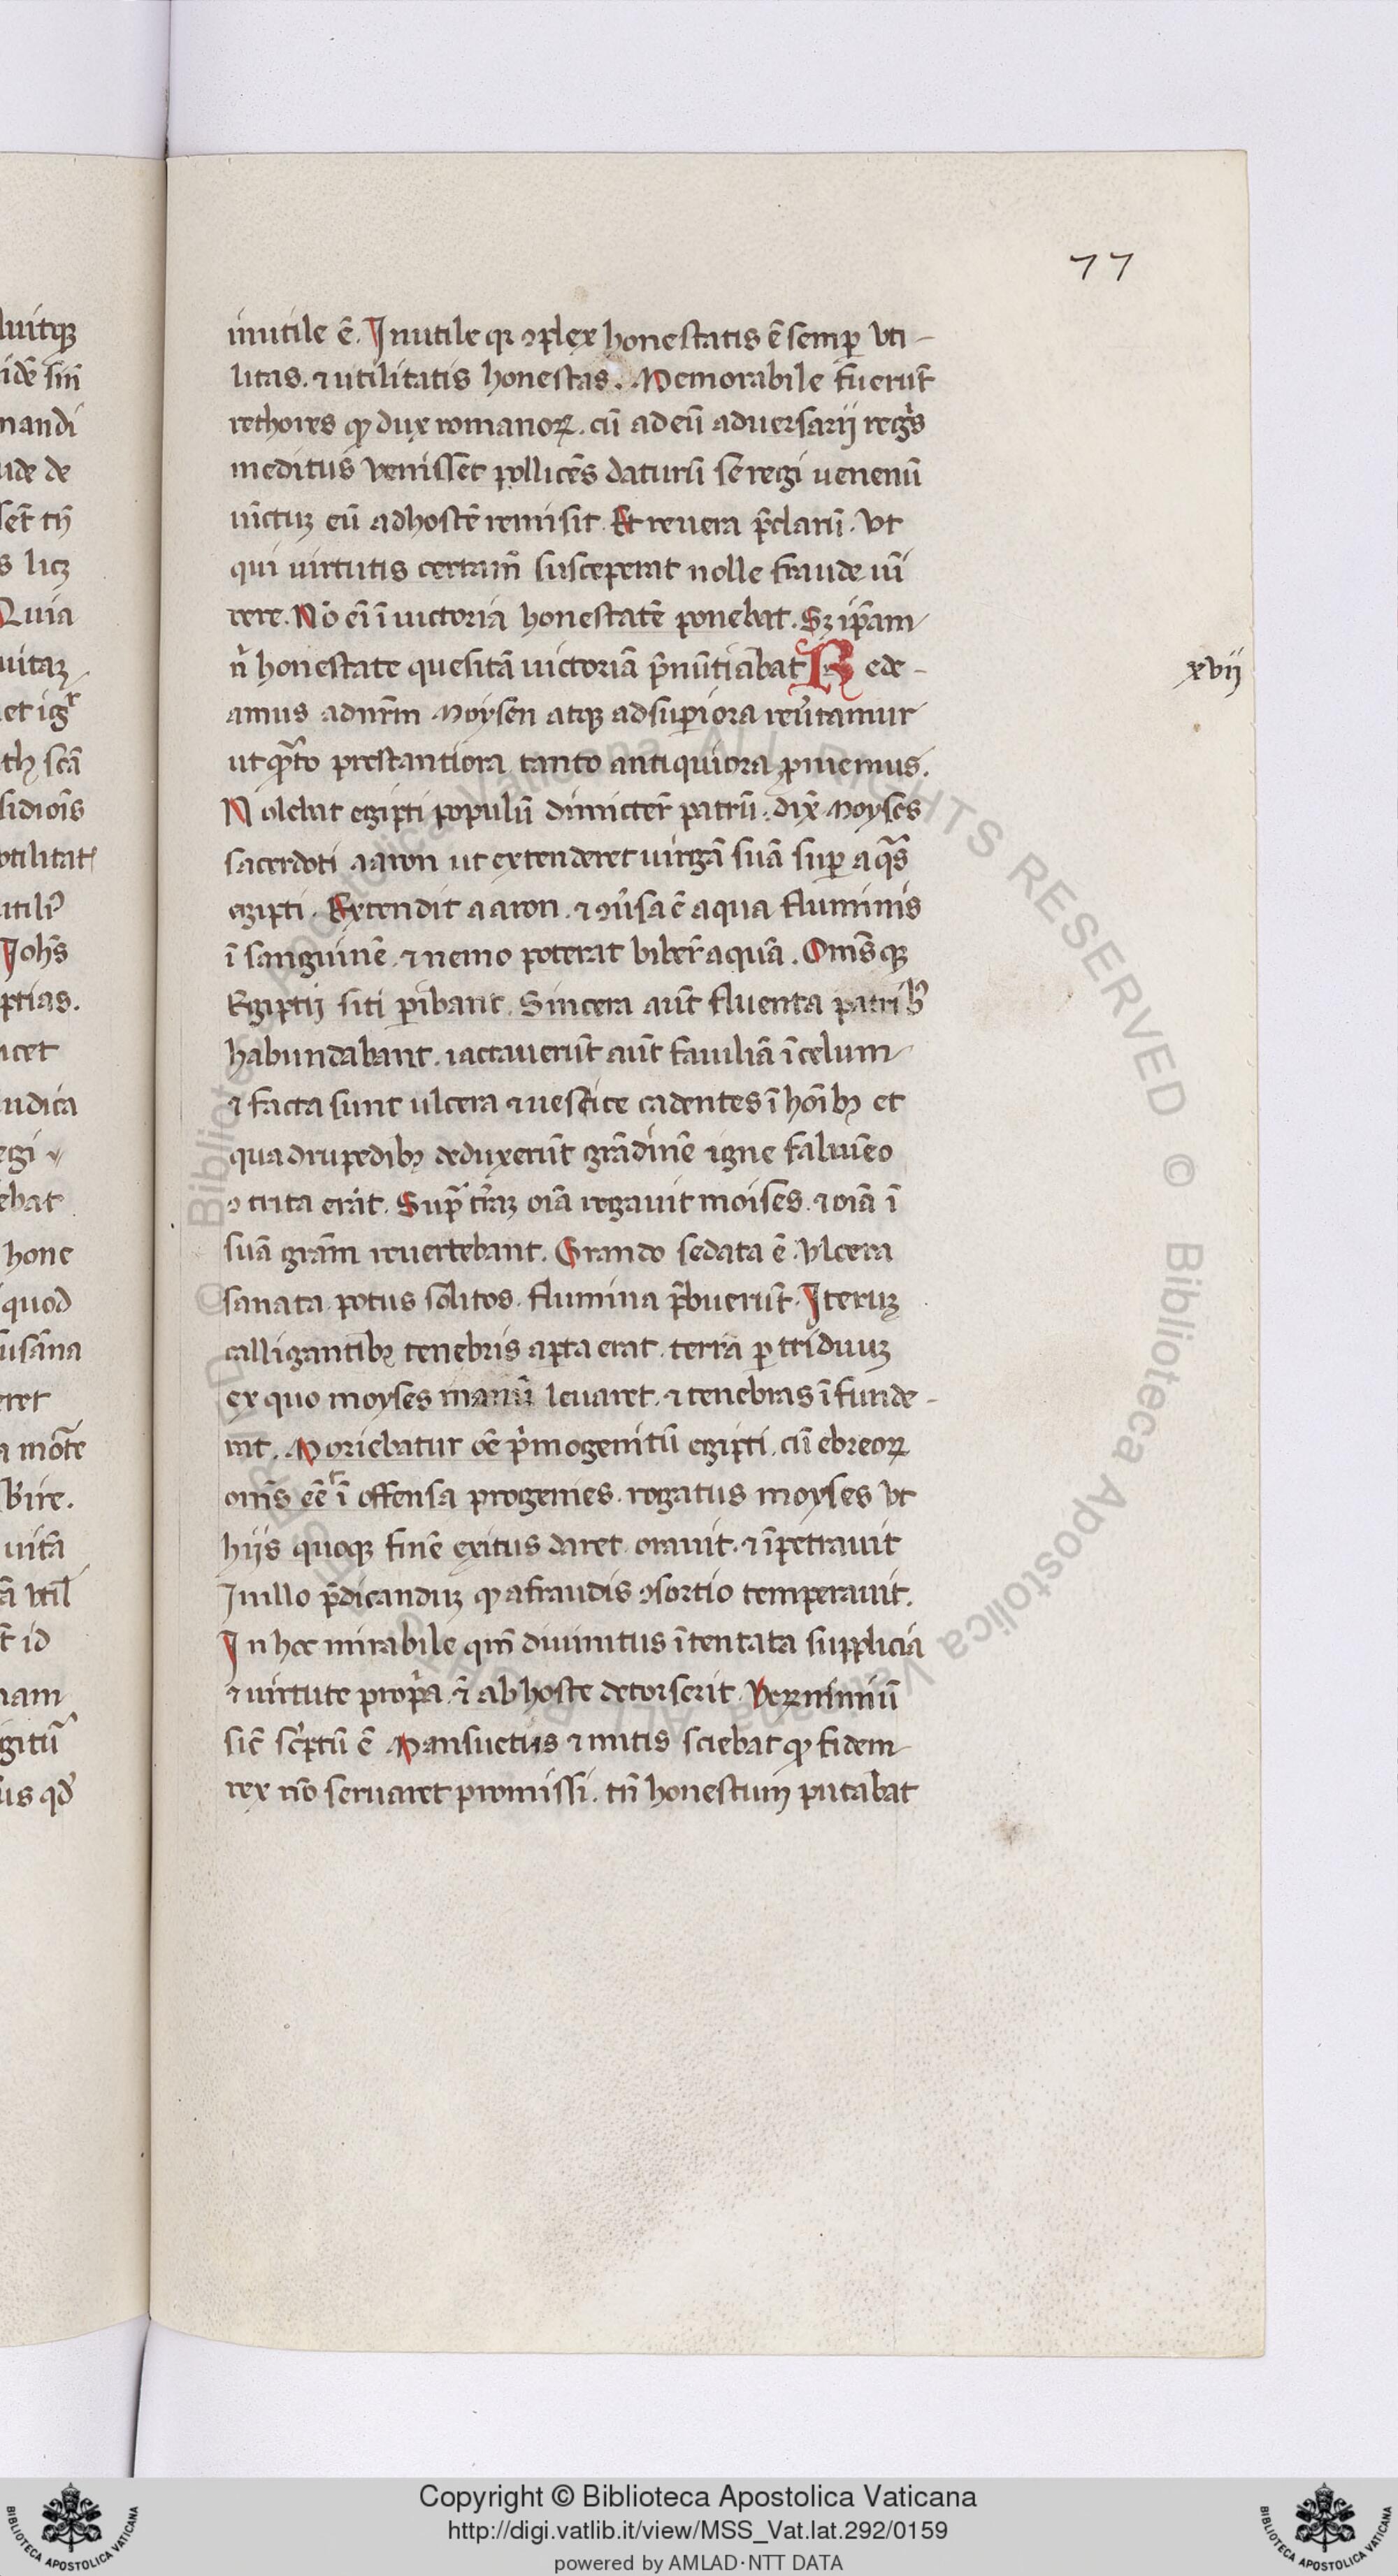 77
inutile ē. Inutile qr ꝯplex honestatis ē semp̱ uti-
litas. ⁊ utilitatis honestas. Memorabile fuerūt
rethores ꝙ dux romanoꝝ. cū ad eū aduersarij regis
meditus venisset pollicēs daturū se regi uenenū
uīctuꝫ eū ad hostē remisit. Et reuera p̄clarū. Vt
qui uirtutis certamē susceperat nolle fraude uī
cere. Nō eī ī uictoria honestatē ponebat. Sꝫ ip̄am
n̄ honestate quesitā uictoriā p̄nūtiabat Rede-
xvij
amus ad nr̄m Moysen atqꝫ ad superiora reutamur
ut q̄to prestantiora tanto antiquiora p̱miemus.
Nolebat egipti populū dimicter̄ patrū. dix̄ Moyses
sacerdoti aaron ut extenderet uirgā suā sup̱ aq̄s
egipti. Extendit aaron. ⁊ ꝯũsa ē aqua fluminis
ī sanguinē. ⁊ nemo poterat biber̄ aquā. Om̄sqꝫ
Egiptij siti p̱ibant. Sincera aūt fluenta patribꝰ
habundabant. iactauerūt aūt fauillā ī celum
⁊ facta sunt ulcera ⁊ uescice cadentes ī hoībꝫ et
quadrupedibꝫ deduxerūt grādinē igne
ꝯtrita erāt. Sup̱ tr̄aꝫ oīa rogauit moises. ⁊ oīa ī
suā grām reuertebant. Grando sedata ē. Vlcera
sanata potus solitos. flumina p̄buerūt. Iteruꝫ
calligantibꝫ tenebris apta erat. terra p̱ triduuꝫ
ex quo moyses manū leuaret. ⁊ tenebras īfunde-
rat. Moriebatur oē p̄mogenitū egipti. cū ebreoꝝ
om̄s eēt ī offensa progenies. rogatus moyses vt
hijs quoqꝫ finē exitus daret. orauit. ⁊ īpetrauit
In illo p̄dicanduꝫ ꝙ a fraudis ꝯsortio temperauit.
In hoc mirabile qm̄ diuinitus ītentata supplicia
⁊ uirtute prop̄a. ⁊ ab hoste detorserit. Veꝝ nimiū
sic̄ sc̄ptū ē Mansuetus ⁊ mitis sciebat ꝙ fidem
rex nō seruaret promissi. tn̄ honestum putabat
Copyright © Biblioteca Apostolica Vaticana
http://digi.vatlib.it/view/MSS_Vat.lat.292/0159
powered by AMLAD·NTT DATA